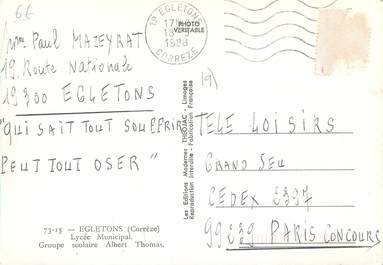 6E
Mme Paul MAZEYRAT
19. Route Nationale
19300 EGLETONS
"QUI SAIT TOUT SOUFFRIR
PEUT TOUT OSER"
73-15 — EGLETONS (Corrèze)
Lycée Municipal.
Groupe scolaire Albert Thomas.
Les Editions Modernes THEOJAC - Limoges
Reproduction interdite - Fabrication Française
PHOTO
VERITABLE
19 EGLETONS
17
18
1988
CORREZE
TELE LOISIRS
GRAND JEU
CEDEX 2397
99239 PARIS CONCOURS